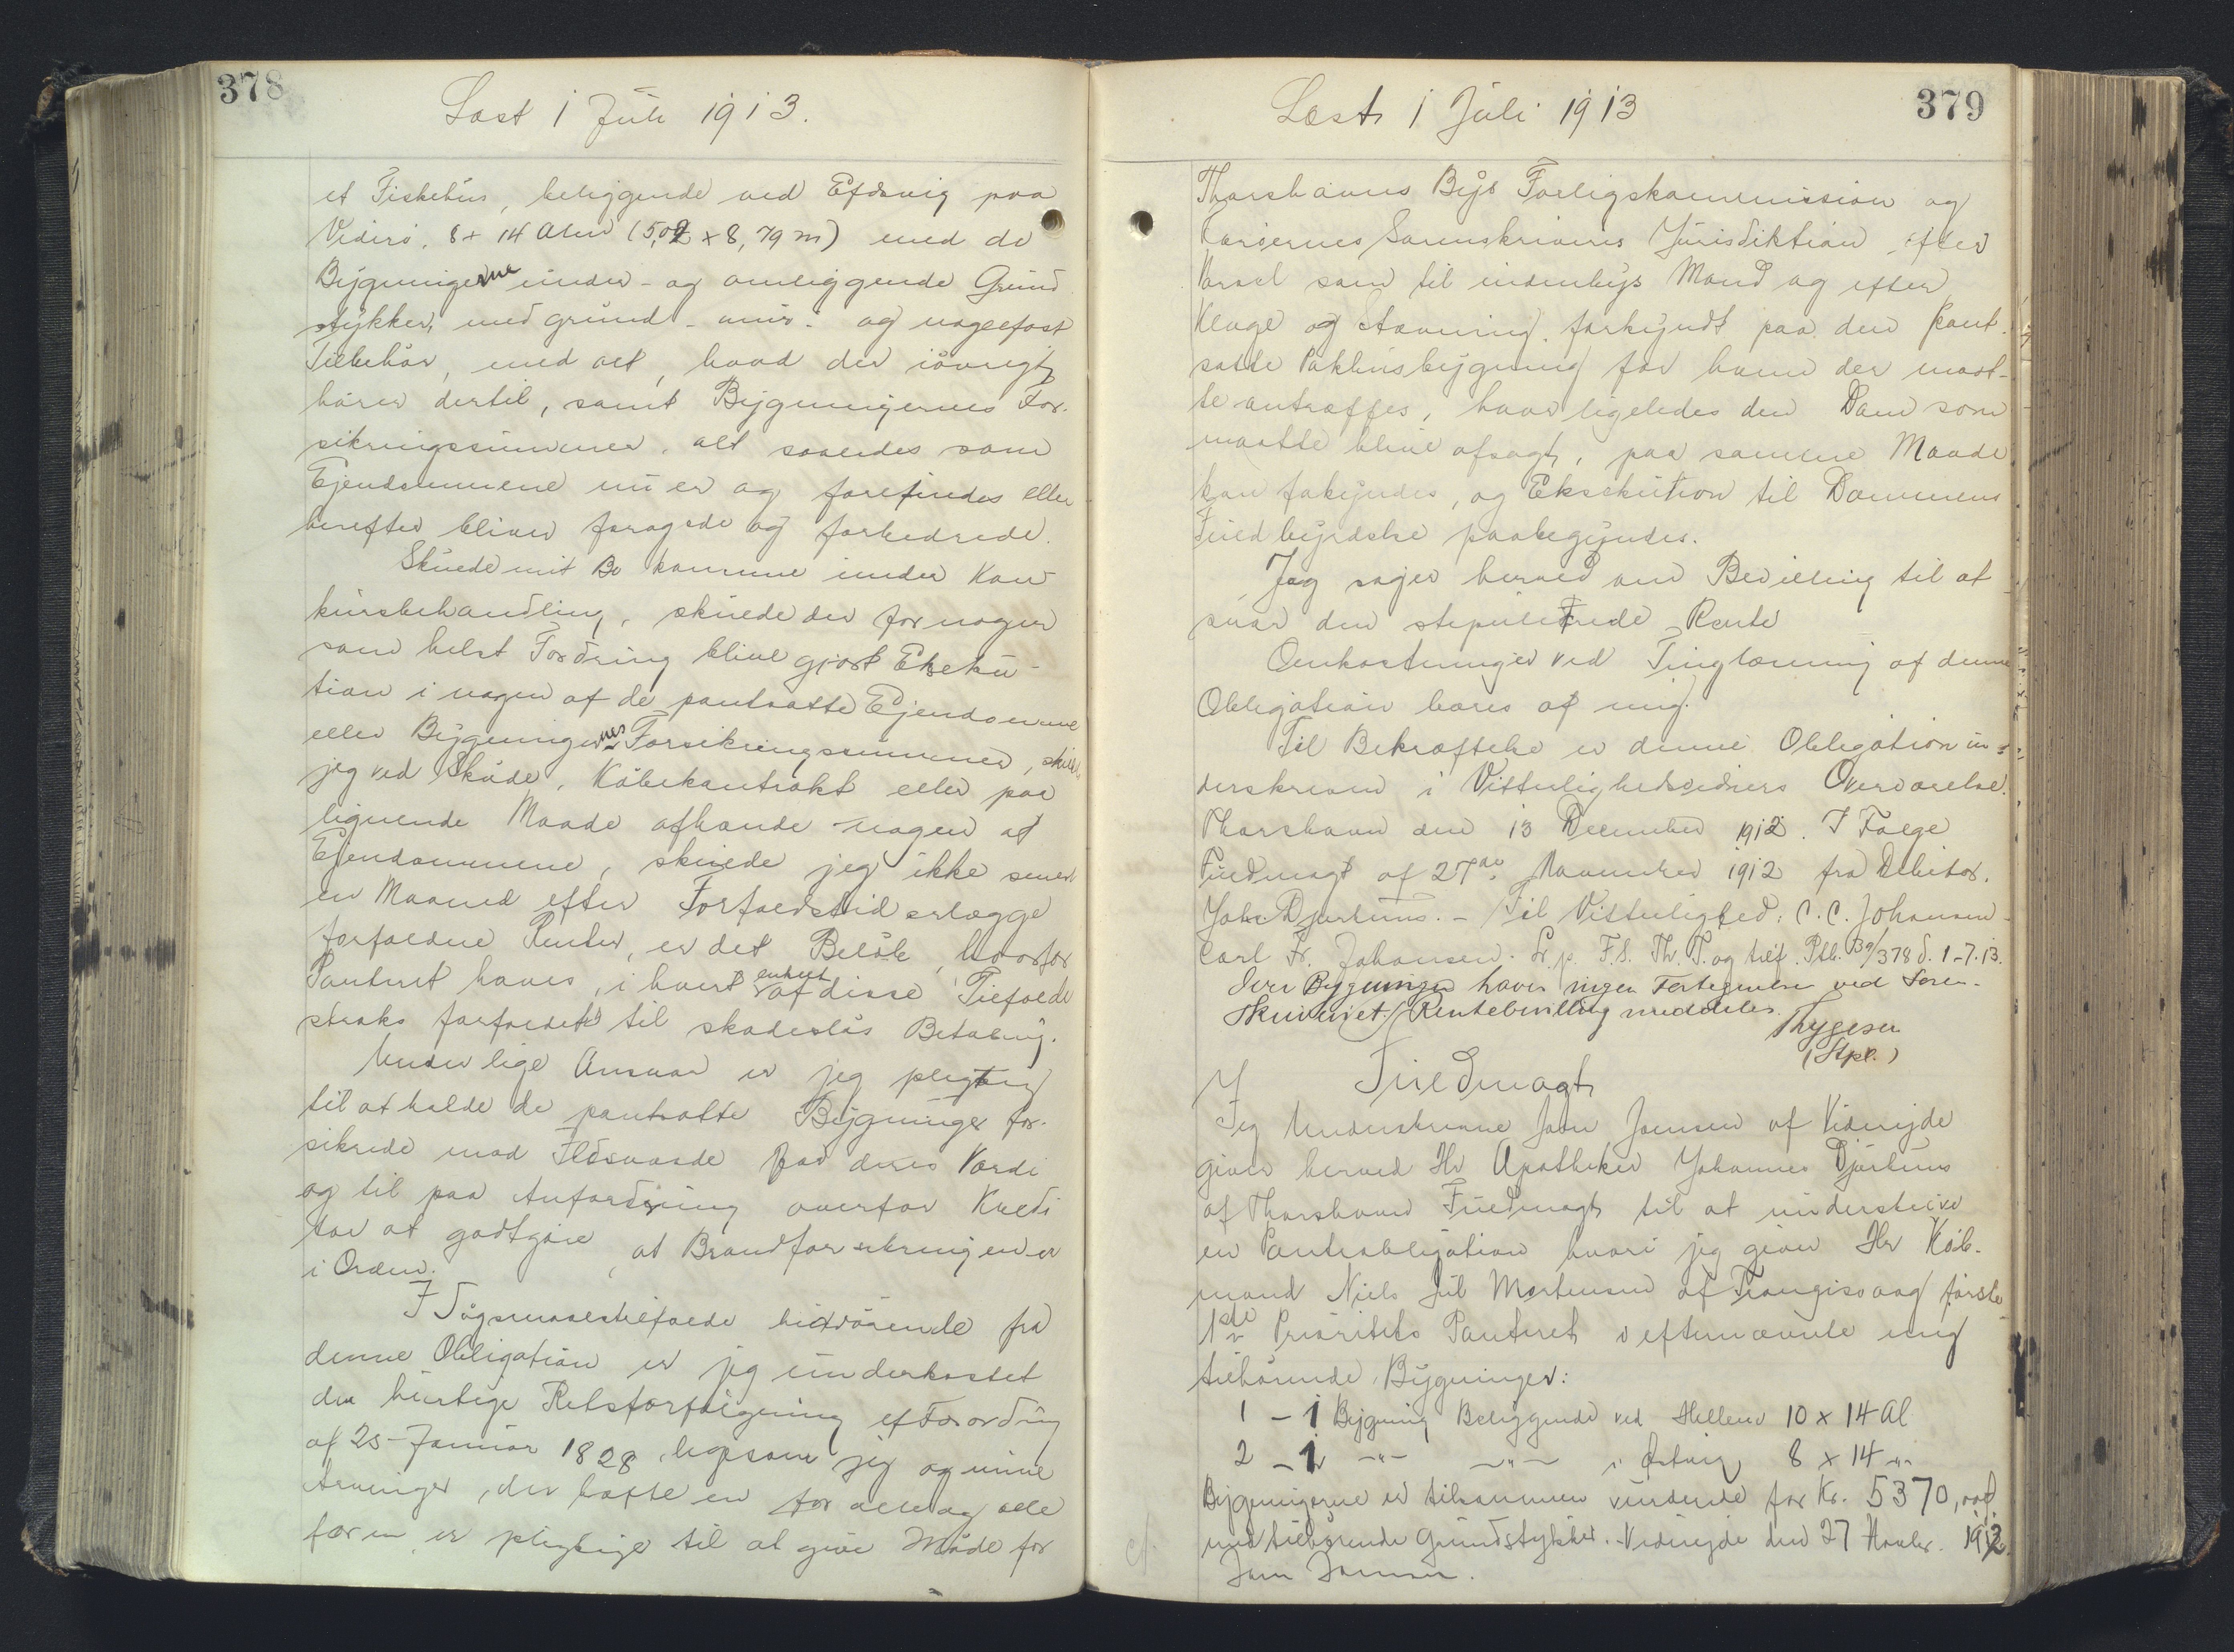 378
Læst 1 Juli 1913.
et Fiskehus, beliggende ved Efdsvig paa
Viderø, 8 x 14 Alen (5,02 x 8,79 m) med de
Bygningerne under- og omliggende Grund
stykker, med grund- mur- og nagelfast
Tilbehör, med alt, hvad der iövrigt
hörer dertil, samt Bygningernes For-
sikringssummer, alt saaledes som
Ejendommene nu er og forefindes eller
herefter bliver forøgede og forbedrede.
Skulde mit Bo komme under Kon
kursbehandling, skulde der for nogen
som helst Fordring blive gjort Ekseku-
tion i nogen af de pantsatte Ejendomme
eller Bygningernes Forsikringssummer, skulde
jeg ved Sköde, Köbekontrakt eller paa
lignende Maade afhænde nogen af
Ejendommene, skulde jeg ikke senest
en Maaned efter Forfaldstid erlægge
forfaldne Renter, er det Belöb, hvorfor
Panteret haves, i hvert enkelt af disse Tilfælde
straks forfaldent til skadeslös Betaling.
Under lige Ansvar er jeg pligtig
til at holde de pantsatte Bygninger for-
sikrede mod Ildsvaade for deres Værdi
og til paa Anfordring overfor Kredi
tor at godtgöre, at Brandforsikringen er
i Orden.
I Sögsmaalstilfælde hidrörende fra
denne Obligation er jeg underkastet
den hurtige Retsforfölgning ef Forordning
af 25 Januar 1828, ligesom jeg og mine
Arvinger, der hæfte en for alle og alle
for en, er pligtige til at give Möde for
Læst 1 Juli 1913
379
Thorshavns Byes Forligskommission og
Færöernes Sorenskriveris Jurisdiktion efter
Varsel som til indenbys Mand og efter
Klage og Stævning, forkyndt paa den pant-
satte Pakhusbygning for hvem der maat-
te antræffes, hvor ligeledes den Dom som
maatte blive afsagt, paa samme Maade
kan fokyndes, og Eksekution til Dommens
Fuldbyrdelse paabegyndes.
Jeg søger herved om Bevilling til at
svar den stipulerede Rente
Omkostninger ved Tinglæsning af denne
Obligation bæres af mig.
Til Bekræftelse er denne Obligation un-
derskreven i Vitterlighedsvidners Overværelse.
Thorshavn den 13 December 1912. I Følge
Fuldmagt af 27de November 1912 fra Debitor.
Johs Djurhuus. - Til Vitterlighed: C. C. Johansen -
Carl Fr. Johansen. Lr. p. F.S. Th. T. og tilf. Ptb. B9/378 d. 1-7.13.
Over Bygninger haves ingen Fortegnelse ved Soren-
skriveriet. Rentebevilling meddeles.
Thygesen
(Stpl.)
Fuldmagt
Jeg Underskrevne Joen Joensen af Videreide
giver herved Hr Apotheker Johannes Djurhuus
af Thorshavn Fuldmagt til at underskrive
en Panteobligation hvori jeg giver Hr Köb-
mand Niels Juul Mortensen af Trangisvaag förste
1ste Prioritets Panteret i efternævnte mig
tilhörende Bygninger:
1 - 1 Bygning Beliggende ved Hellen 10 x 14 Al
2 - 1 -"- -"- i Østvig 8 x 14 -"-
Bygningerne er tilsammen vurderede for Kr. 5370, og
med tilhörende Grundstykker. Videreide den 27 Novbr. 1912.
Joen Joensen.